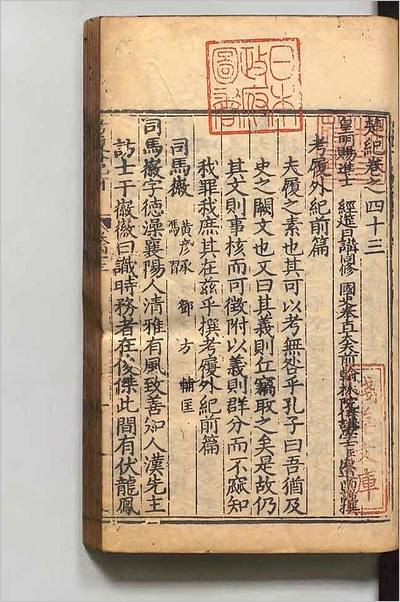 日本
政府
圖書
楚紀卷之四十三
皇明賜進士 經筵日講官修國史奉直大夫前翰林院侍讀學士臣廖道南撰
考履外紀前篇
夫履之素也其可以考無咎乎孔子曰吾猶及
史之闕文也又曰其義則丘竊取之矣是故仍
其文則事核而可徵附以義則群分而不踰知
我罪我庶其在茲乎撰考履外紀前篇
司馬徽 黃彥承 鄧方 輔匡
馮習
司馬徽字德澡襄陽人清雅有風致善知人漢先主
訪士于徽徽曰識時務者在俊傑此間有伏龍鳳